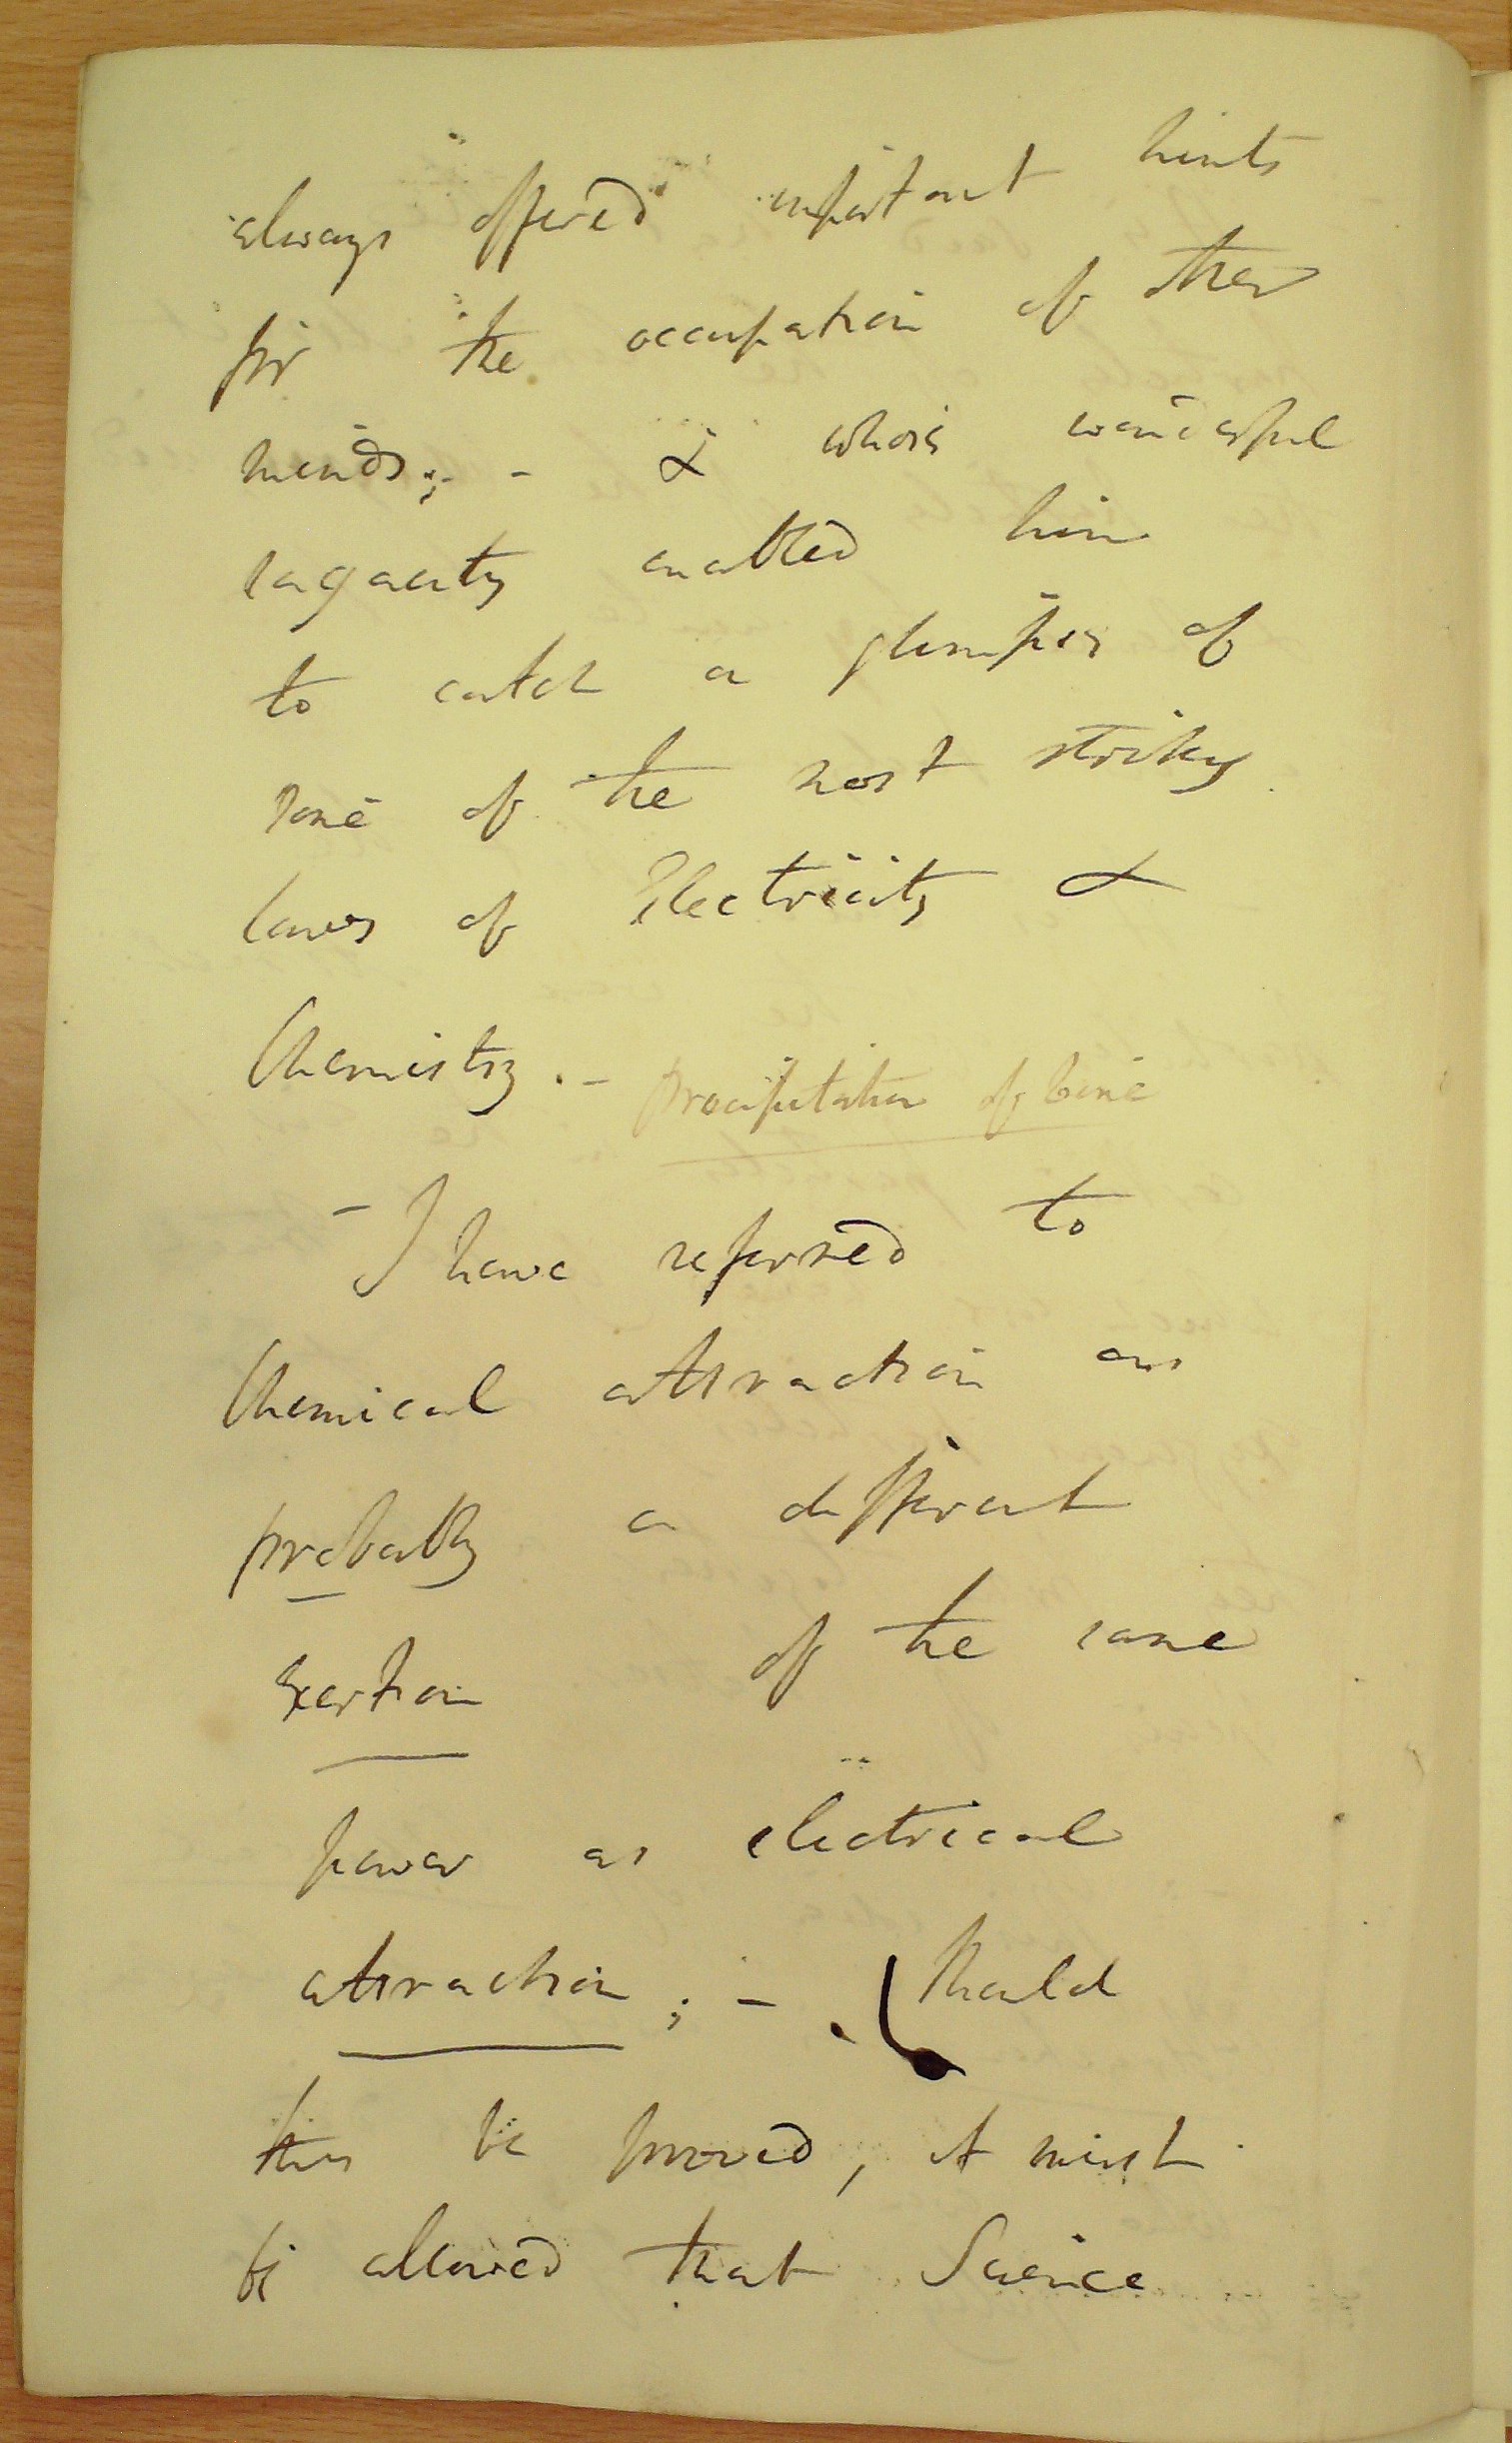 always offered important hints
for the occupation of other
minds; - & whose wonderful
sagacity enabled him
to catch a glimpse of
some of the most striking
laws of Electricity &
Chemistry. - precipitation of
- I have referred to
Chemical attraction as
probably a different
exertion of the same
power as electrical
attraction; - Should
this be proved, it must
be allowed that Science